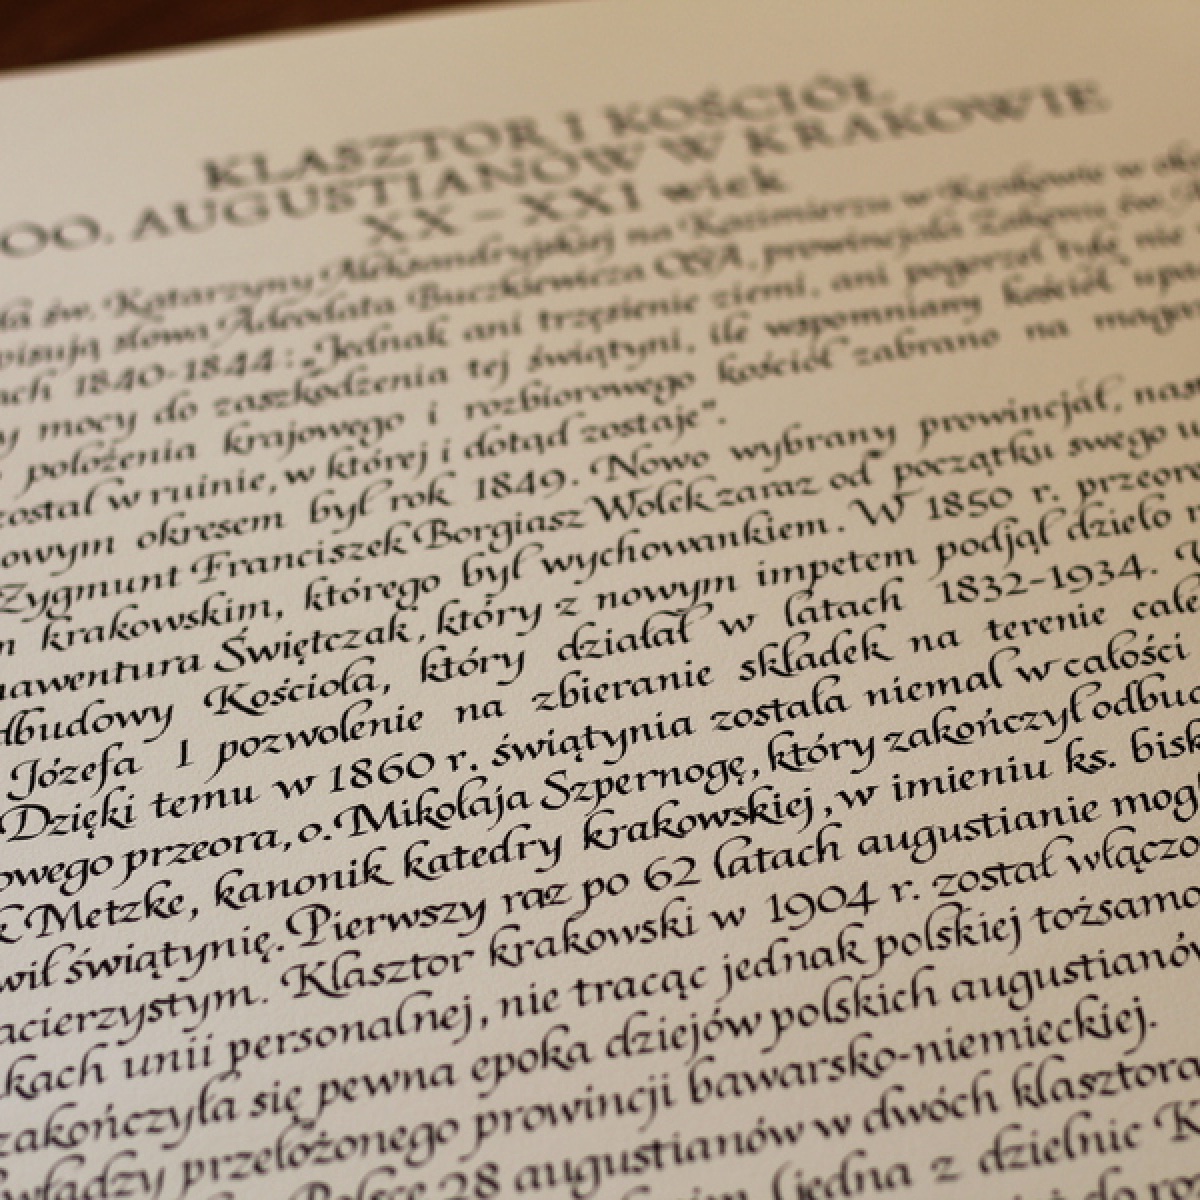 KLASZTOR I KOŚCIÓŁ
OO. AUGUSTIANÓW W KRAKOWIE
XX – XXI wiek
św. Katarzyny Aleksandryjskiej na Kazimierzu w Krakowie w
pisują słowa Adeodata Buczkiewicza OSA, prowincjała Zakonu św.
ach 1840-1844: „Jednak ani trzęsienie ziemi, ani pogorzel tyle nie
y mocy do zaszkodzenia tej świątyni, ile wspomniany kościół upa
położenia krajowego i rozbiorowego kościół zabrano na maga
został w ruinie, w której i dotąd zostaje".
owym okresem był rok 1849. Nowo wybrany prowincjał, nas
Zygmunt Franciszek Borgiasz Wolek zaraz od początku swego u
n krakowskim, którego był wychowankiem. W 1850 r. przeor
nawentura Świętczak, który z nowym impetem podjął dzieło r
dbudowy Kościoła, który działał w latach 1832-1934.
Józefa I pozwolenie na zbieranie składek na terenie całe
Dzięki temu w 1860 r. świątynia została niemal w całości
owego przeora, o. Mikołaja Szpernogę, który zakończył odbu
k Metzke, kanonik katedry krakowskiej, w imieniu ks. bisk
wił świątynię. Pierwszy raz po 62 latach augustianie mogl
acierzystym. Klasztor krakowski w 1904 r. został włączo
kach unii personalnej, nie tracąc jednak polskiej tożsamo
zakończyła się pewna epoka dziejów polskich augustianów
władzy przełożonego prowincji bawarsko-niemieckiej.
Polsce 28 augustianów w dwóch klasztora
(jedna z dzielnic K